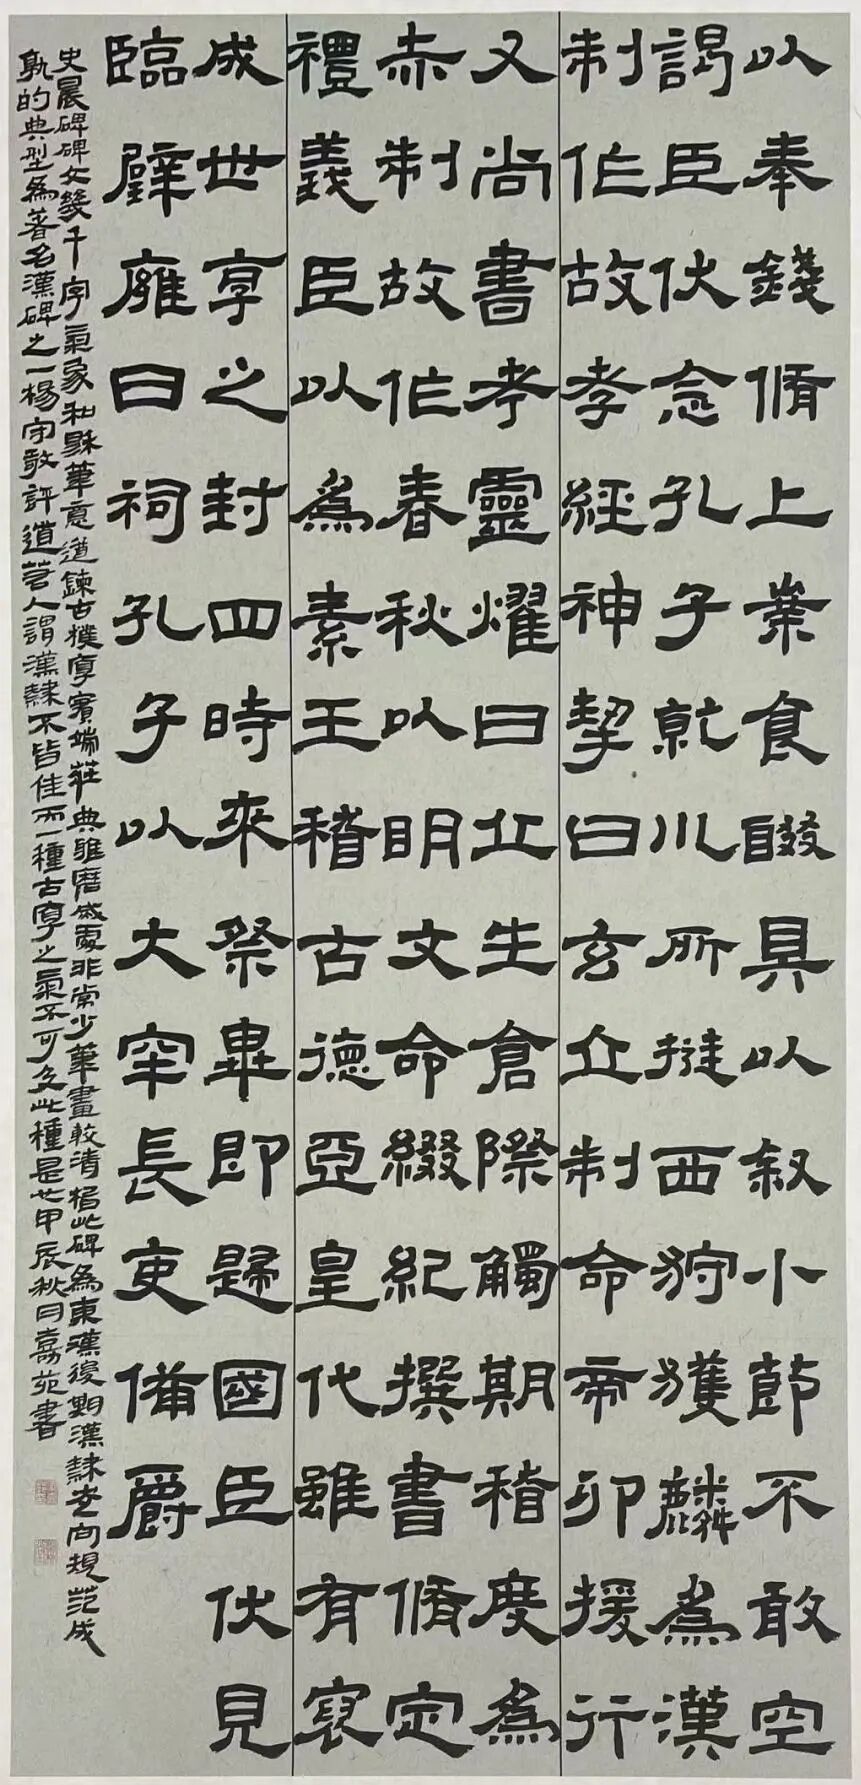 以奉錢脩上案食醊具以叙小節不敢空
謁臣伏念孔子乾川所挺西狩獲麟為漢
制作故孝經神挈曰玄丘制命帝卯援行
又尚書考靈燿曰丘生倉際觸期稽度為
赤制故作春秋以明文命綴紀撰書脩定
禮義臣以為素王稽古德亞皇代雖有褒
成世享之封四時來祭畢即歸國臣伏見
臨璧雍日祠孔子以大牢長吏備爵
史晨碑碑文幾千字氣象和穆筆意遒鍊古樸厚實端莊典雅磨滅處非常少筆畫較清晰此碑為東漢後期漢隸走向規范成
熟的典型為著名漢碑之一楊守敬評道昔人謂漢隸不皆佳而一種古厚之氣不可及此種是也甲辰秋月嘉苑書